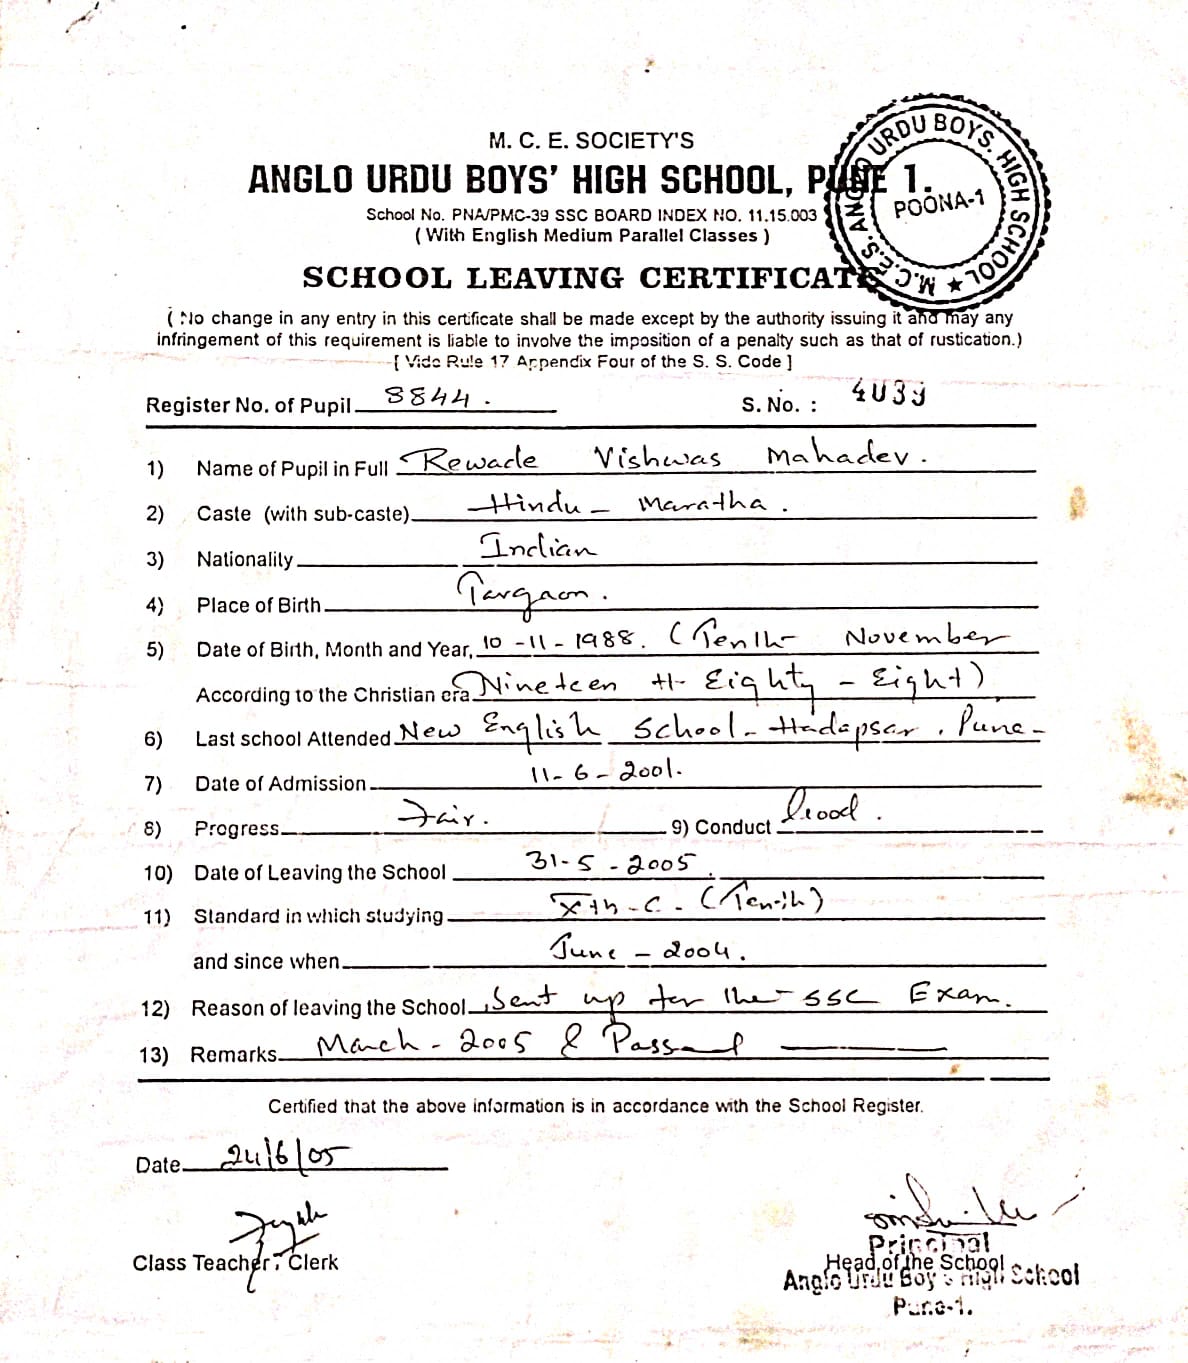 M. C. E. SOCIETY'S
ANGLO URDU BOYS' HIGH SCHOOL, PUNE 1.
M.C.E.S. ANGLO URDU BOYS. HIGH SCHOOL ★
POONA-1
School No. PNA/PMC-39 SSC BOARD INDEX NO. 11.15.003
( With English Medium Parallel Classes )
SCHOOL LEAVING CERTIFICATE
( No change in any entry in this certificate shall be made except by the authority issuing it and may any
infringement of this requirement is liable to involve the imposition of a penalty such as that of rustication.)
[ Vide Rule 17 Appendix Four of the S. S. Code ]
Register No. of Pupil 8844. S. No. : 4039
1) Name of Pupil in Full Rewade Vishwas Mahadev.
2) Caste (with sub-caste) Hindu - Maratha.
3) Nationality Indian
4) Place of Birth Targaon.
5) Date of Birth, Month and Year, 10-11-1988. (Tenth November
According to the Christian era Nineteen Eighty - Eight)
6) Last school Attended New English School - Hadapsar, Pune-
7) Date of Admission 11-6-2001.
8) Progress Fair. 9) Conduct Good.
10) Date of Leaving the School 31-5-2005.
11) Standard in which studying Xth-C-(Tenth)
and since when June - 2004.
12) Reason of leaving the School Sent up for the SSC Exam.
13) Remarks March - 2005 & Passed
Certified that the above information is in accordance with the School Register.
Date 24/6/05
Class Teacher / Clerk
Principal
Head of the School
Anglo Urdu Boy's High School
Pune-1.